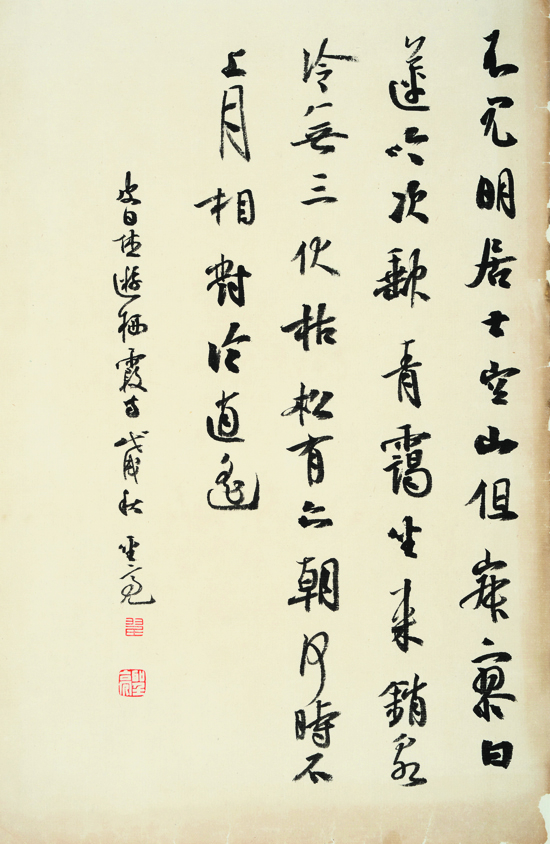 不見明居士空山但寂寥白
蓮吟次缺青靄坐來銷泉
冷無三伏枯松有六朝何時石
上月相對論逍遙
皮日休遊栖霞寺戊戌秋